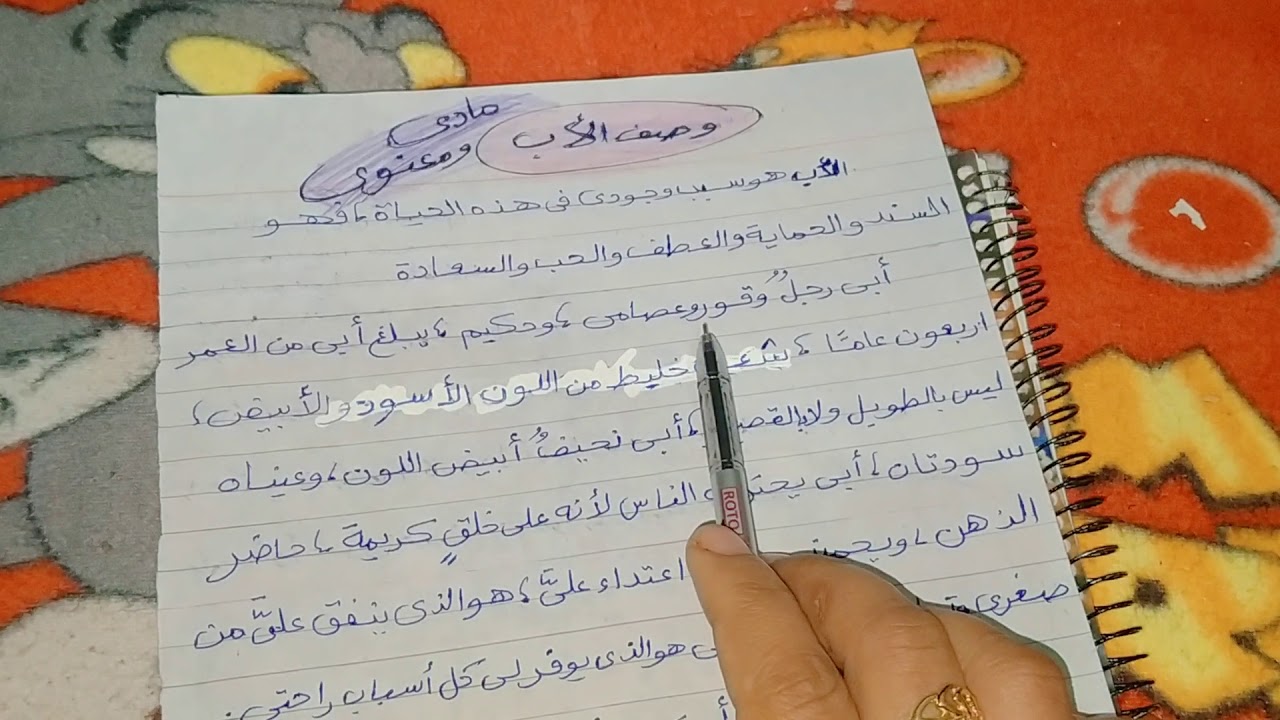 وصف الأب
مادى
ومعنوى
الأب هو سبب وجودى فى هذه الحياة، فهو
السند والحماية والعطف والحب والسعادة
أبى رجلٌ وقور وعصامى، وحكيم، يبلغ أبى من العمر
اربعون عامًا، شعره خليط من اللون الأسود والأبيض،
ليس بالطويل ولا بالقصير، أبى نحيفٌ أبيض اللون، وعيناه
سودتان، أبى يحترم الناس لأنه على خلقٍ كريمة، حاضر
الذهن، اعتداء علىَّ، هو الذى ينفق علىَّ من
صغرى هو الذى يوفر لى كل أسباب راحتى.
ROTO